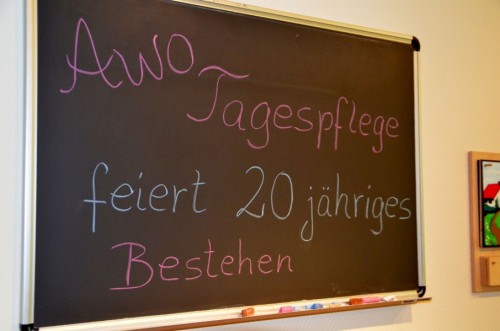 AWO
Tagespflege
feiert 20 jähriges
Bestehen